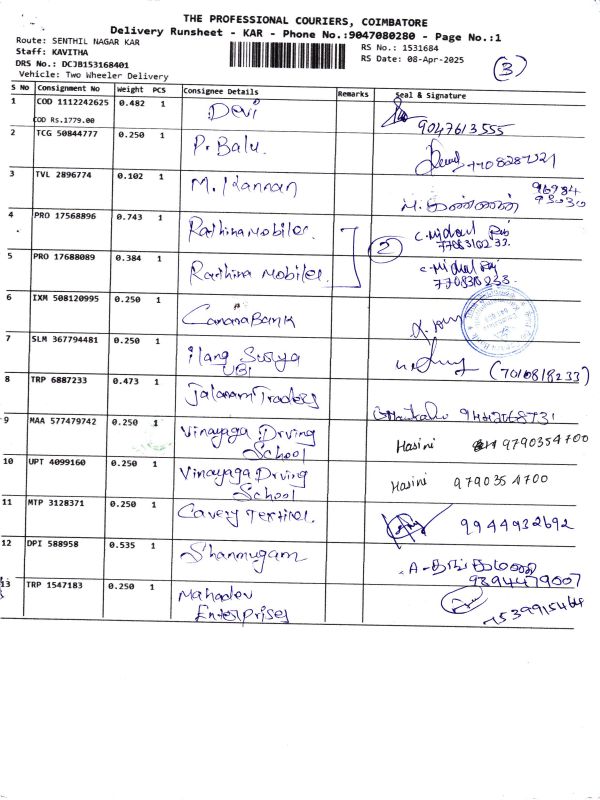 THE PROFESSIONAL COURIERS, COIMBATORE
Delivery Runsheet - KAR - Phone No.:9047080280 - Page No.:1
Route: SENTHIL NAGAR KAR
RS No.: 1531684
Staff: KAVITHA
RS Date: 08-Apr-2025
DRS No.: DCJB153168401
Vehicle: Two Wheeler Delivery
3
S No Consignment No Weight PCS Consignee Details Remarks Seal & Signature
1 COD 1112242625 0.482 1 Devi
COD Rs.1779.00 9047613555
2 TCG 50844777 0.250 1 P. Balu.
3 TVL 2896774 0.102 1 M. Kannan M. கண்ணன்
4 PRO 17568896 0.743 1 Rathina Mobiles. C. Michael Raj
2
5 PRO 17688089 0.384 1 Rathina Mobiles. C. Michael Raj
6 IXM 508120995 0.250 1 Canara Bank
7 SLM 367794481 0.250 1 ilang Surya
UBI (7010818233)
8 TRP 6887233 0.473 1 Jalaram Traders
9 MAA 577479742 0.250 1 Vinayaga Drving Hasini 9790354700
School
10 UPT 4099160 0.250 1 Vinayaga Drving Hasini 9790354700
School
11 MTP 3128371 0.250 1 Cavery Textiles. 9944932692
12 DPI 588958 0.535 1 Shanmugam
9894479007
13 TRP 1547183 0.250 1 Mahadev
Enterprises